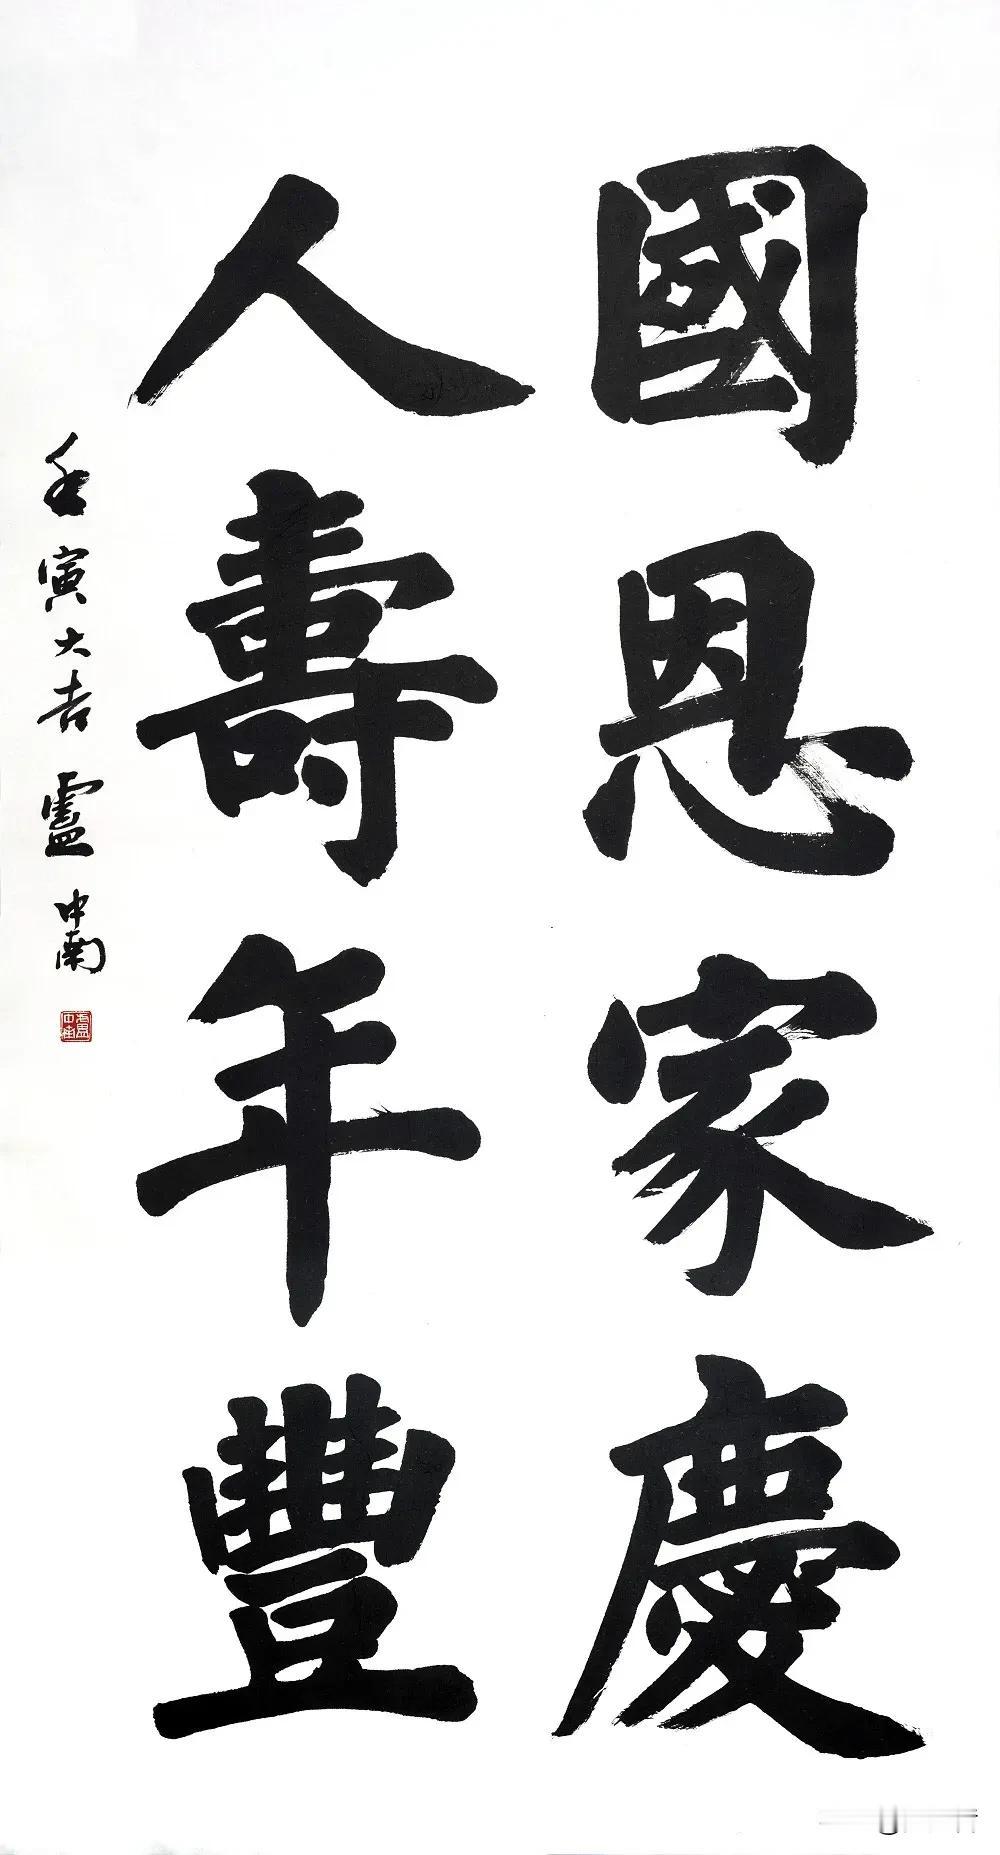 國恩家慶
人壽年豐
壬寅大吉 盧中南